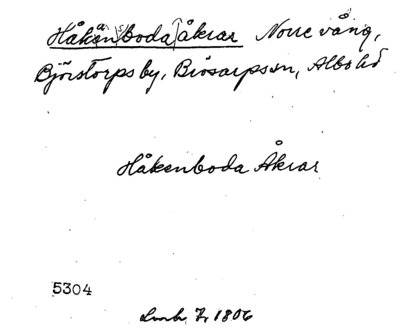 Håkan|s|boda|åkrar Norre vång,
Björstorps by, Brösarps sn, Albo hd
Håkenboda Åkrar
5304
Lmh. Z, 1806